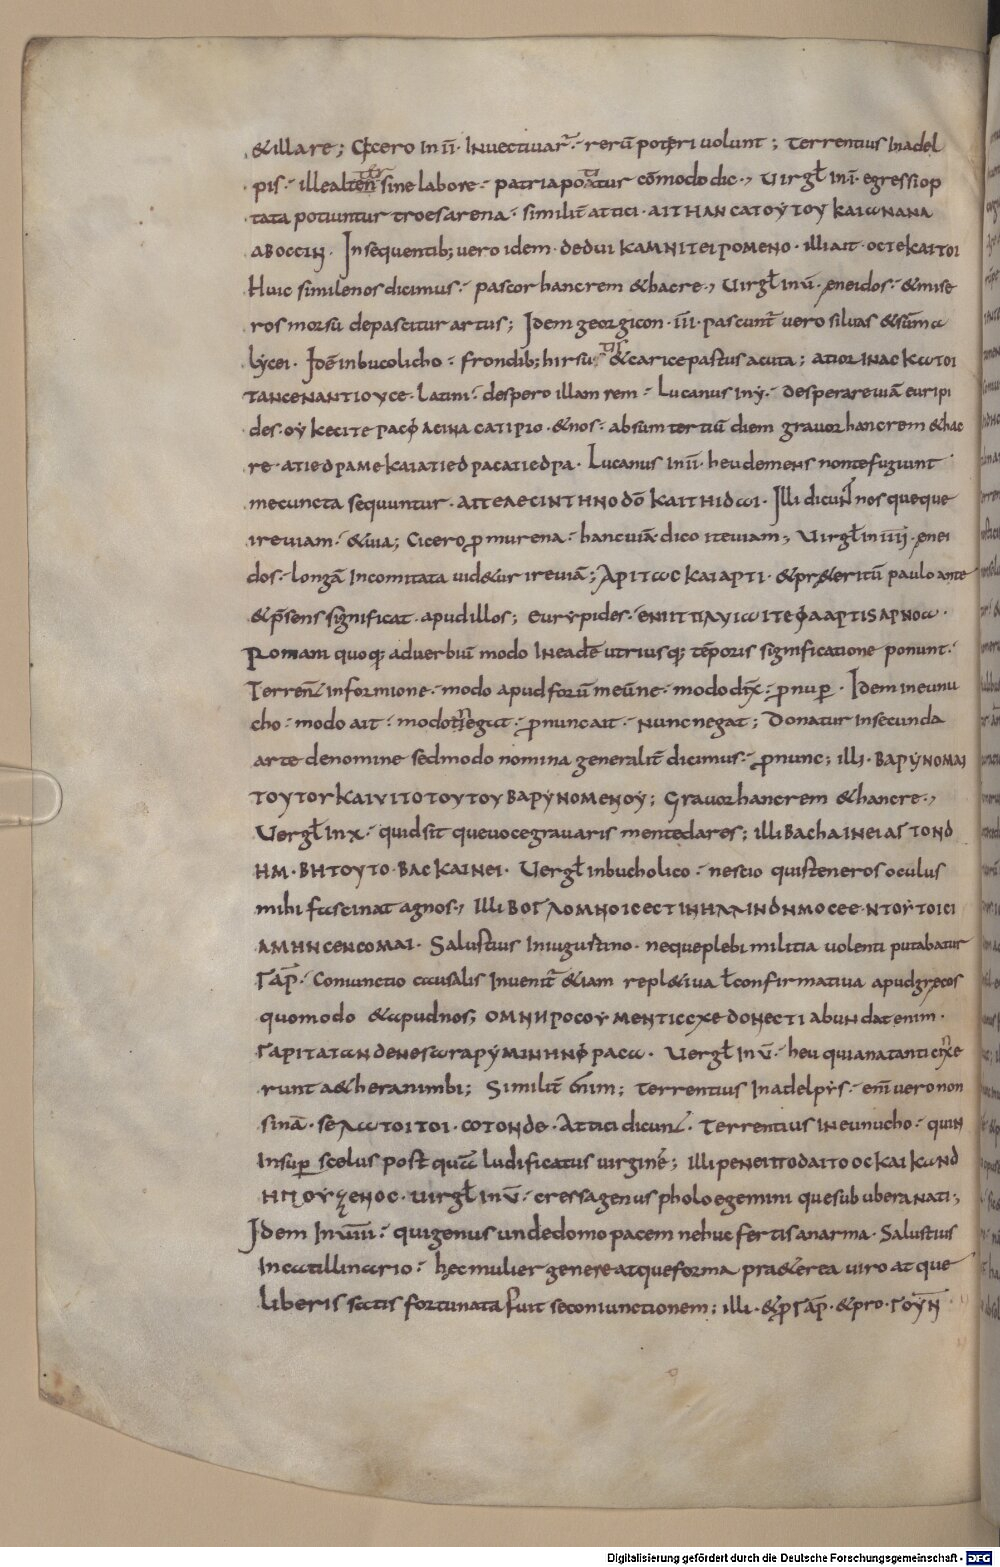 &illare; Cicero In ii· Invectivar̄· rerū potiri volunt; Terrentius Inadel
pis· ille alten̄ sine labore· patria potitur cōmodo dic·, Virgł In i· egressi op
tata potiuntur troes arena· similit̄ attici· ΑΙΤΗΑΝ CΑΤΟΥΤΟΥ ΚΑΙωΝΑΝΑ
ΑΒΟCCΙΝ· Insequentib; vero idem· ΔΕΔVΙ ΚΑΜΝΙΤΕΙΡΟΜΕΝΟ· illi ait· ΟCΤΕΚΑΙΤΟΙ
Huic simile nos dicimus· pascor hanc rem & hac re·, Virgł In v̄· ęneidos· & mise
ros morsu depascitur artus; Idem georgicon· iii· pascunt̄ vero silvas & sūma
lycei· Idē in bucolicho· frondib; hirsutis & carice pastus acuta; ΑΤΙΟΡΙΝΑC ΚωΤΟΙ
ΤΑΝCΕΝΑΝΤΙΟΥCΕ· Latini· despero illam rem· Lucanus In v· desperare viā euripi
des· ΟΥ ΚΕCΙΤΕ ΡΑCΦ ΑCΙΝΑ CΑΤΙΡΙΟ· & nos· absum tertiū diem gravor hanc rem & hac
re· ΑΤΙΕΔΡΑΜΕΚΑΙΑΤΙΕΔΡΑCΑΤΙΕΔΡΑ· Lucanus In ii· heu demens non te fugiunt
me cuncta sequuntur· ΑΠΕΛΕCΙΝΤΗΝΟΔŌ ΚΑΙΤΗΙΔωΙ· Illi dicun̄t nos queque
ire viam· & via; Cicero ꝓ murena· hanc viā dico ite viam; Virgł in iiij· ęnei
dos· longā Incomitata vid&ur ire viā; ΑΡΙΤωC ΚΑΙ ΑΡΤΙ· & pr&eritū paulo ante
& p̄sens significat· apud illos; Eurypides· ΕΝΙΙΤ ΠΛΥΙωΙΤΕΦΑΑΡΤΙSΑΡΝΟω·
Romani quoq; adverbiū modo In eadē utriusq; tēporis significatione ponunt·
Terren̄ In formione· modo apud forū me ūne· modo dix̄· ꝓ nuꝑ· Idem in eunu
cho· modo ait· modo negat· ꝓ nunc ait· Nunc negat; Donatur In secunda
arte de nomine sed modo nomina generalit̄ dicimus· ꝓ nunc; illi· ΒΑΡΥΝΟΜΑΙ
ΤΟΥΤΟΥ ΚΑΙVΙΤΟΤΟΥΤΟΥ ΒΑΡΥΝΟΜΕΝΟΥ; Gravor hanc rem & hanc re·,
Vergł In x· quid sit que voce gravaris mente dares; illi ΒΑCΗΑΙΝΕΙ ΑSΤΟΝΔ
ΗΜ· ΒΗΤΟΥΤΟ· ΒΑCΚΑΙΝΕΙ· Vergł in bucholico· nescio quis teneros oculus
mihi fascinat agnos·, Illi ΒΟΓΛΟΜΝΟΙCΕCΤΙΝΗΛΛΙΝΔΗΜΟCΕΕ·ΝΤΟΥΤΟΙCΙ
ΑΜΗΝCΕΝCΟΜΑΙ· Salustius In iugustino· neque plebi militia volenti putabatur
ΓΑΡ̄· Coniunctio causalis Invenit̄ &iam repl&iva ł confirmativa apud gręcos
quomodo & apud nos; ΟΜΝΗΡΟC ΟΥ ΜΕΝΤΙCCΧΕΔΟΝΕCΤΙ abundat enim·
ΓΑΡΙΤΑΤωΝΔΕΝΕSωΓΑΡΥΜΙΝΗΝΦΡΑCω· Vergł In v̄· heu quianam tanti cinxe
runt a&hera nimbi; Similit̄ enim; Terrentius In adelpys· enī vero non
sinā· SΕΛωΤΟΙΤΟΙ· CΟΤΟΝΔΕ· Attici dicun̄· Terrentius In eunucho· quin
Insup̄ scelus postquā ludificatus virginē; illi ΡΕΝΕΙΠΟΔΑΙΤΟΟC ΚΑΙ ΚωΝΔ
ΗΠΟΥΞΕΝΟC· Virgł In v̄· cressa genus pholoe gemini que sub ubera nati;
Idem In viii· qui genus unde domo pacem ne huc fertis an arma· Salustius
In catillinario· hęc mulier genere atque forma pr&erea viro atque
liberis satis fortunata fuit se coniunctionem; illi· & ꝓ ΓΑΡ̄· & pro· ΓΟΥΝ̄